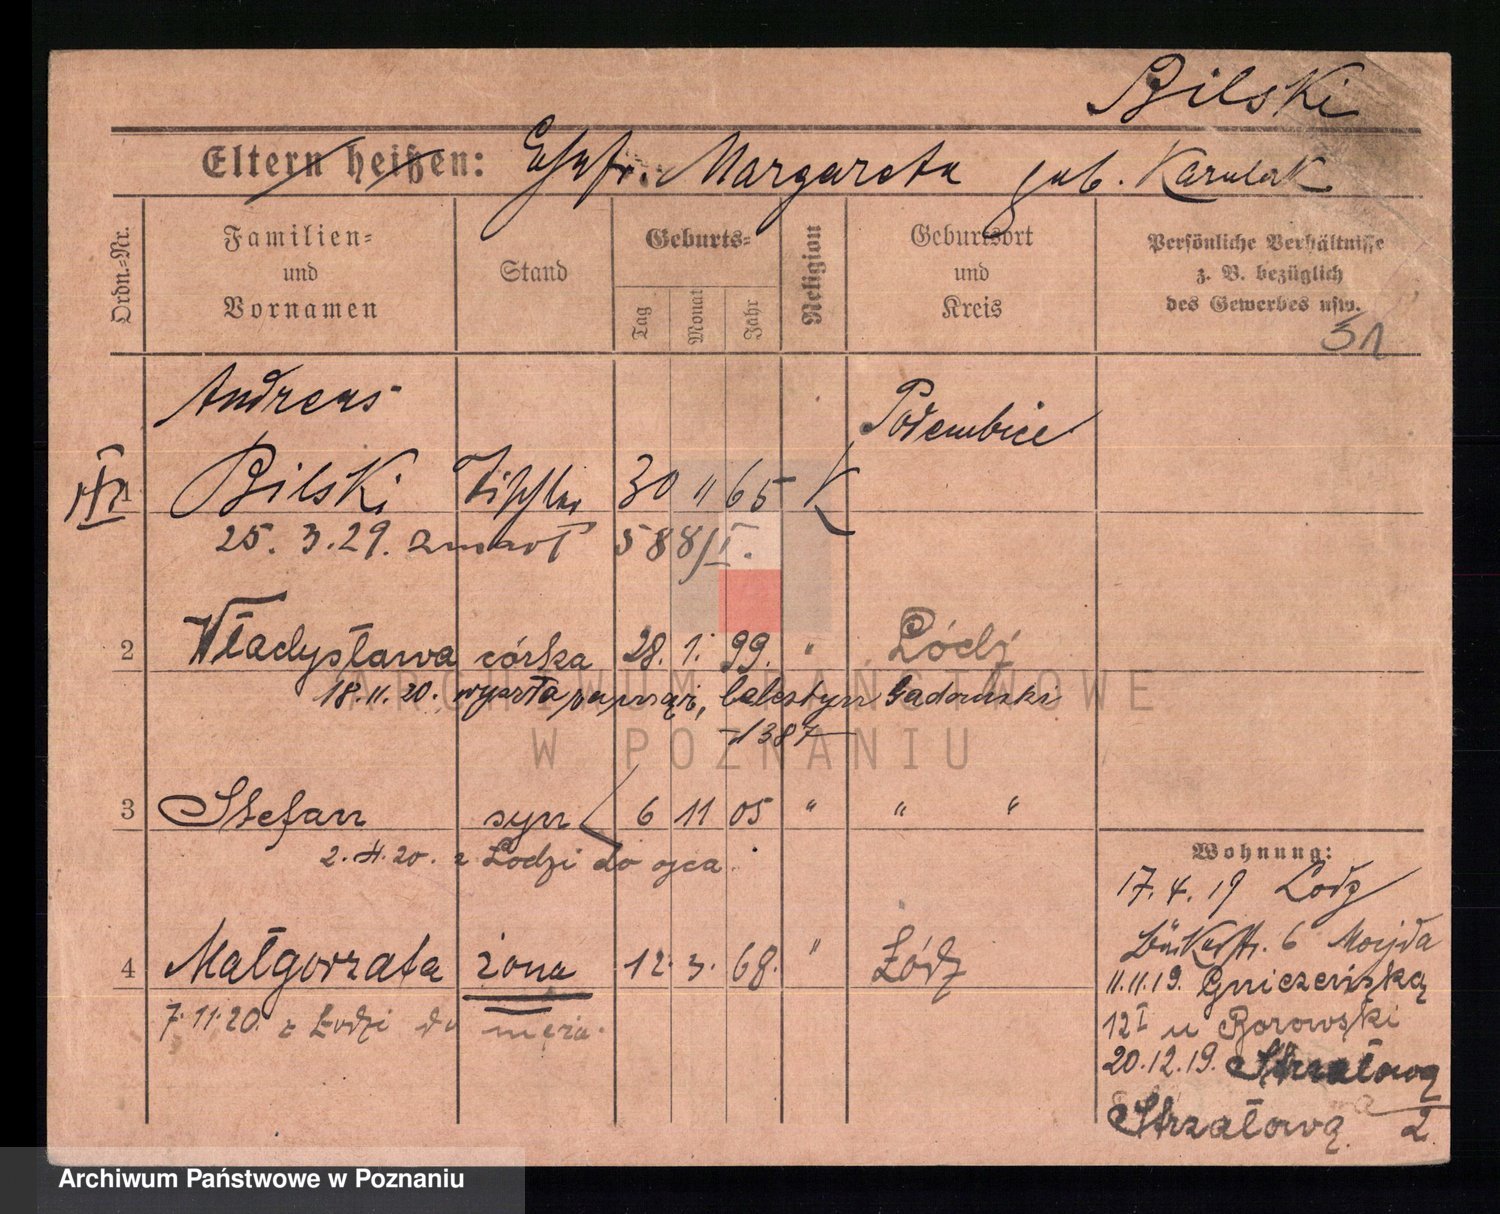 Bilski
Eltern heißen: Ehefr. Margareta geb. Karulak
Ordn.-Nr.
Familien-
und
Vornamen
Stand
Geburts-
Tag
Monat
Jahr
Religion
Geburtsort
und
Kreis
Persönliche Verhältnisse
z. B. bezüglich
des Gewerbes usw.
51
Andreas
1 Bilski Tischler 30 11 65 K Podembice
25. 3. 29. zmarł 588/I.
2 Władysława córka 28. 1. 99. " Łódź
18.11.20. wyszła Celestyn Gadomski
3 Stefan syn 6 11 05 " " "
2. 20. z Łodzi do ojca
4 Małgorzata żona 12. 3. 68. " Łódź
7.11.20. z Łodzi do męża.
Wohnung:
17. 4. 19 Lodz
6
11.11.19.
12 I u Borowski
20.12.19. Strzałową
Strzałową 2
ARCHIWUM PAŃSTWOWE
W POZNANIU
Archiwum Państwowe w Poznaniu